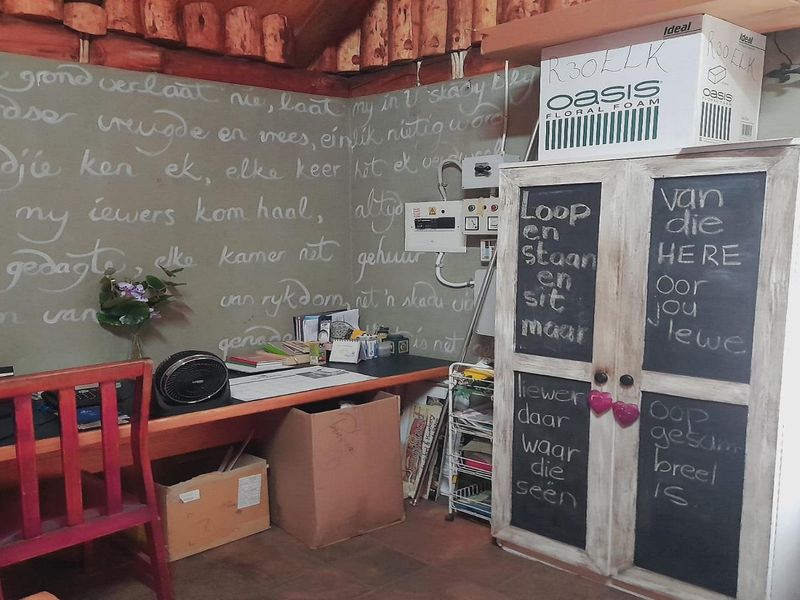 grond verlaat nie, laat my in 'n skadu bly
vreugde en vrees, ein lik nietig
ken ek, elke keer hot ek
my iewers kom haal, altyd
gedagte, elke kamer net gehuur
van rykdom, net 'n skadu van
is net
R30 ELK
oasis
FLORAL FOAM
Ideal
R30 ELK
oasis
FLORAL FOAM
Loop
en
staan
en
sit
maar
liewer
daar
waar
die
seën
van
die
HERE
oor
jou
lewe
oop
gesam
breel
is.